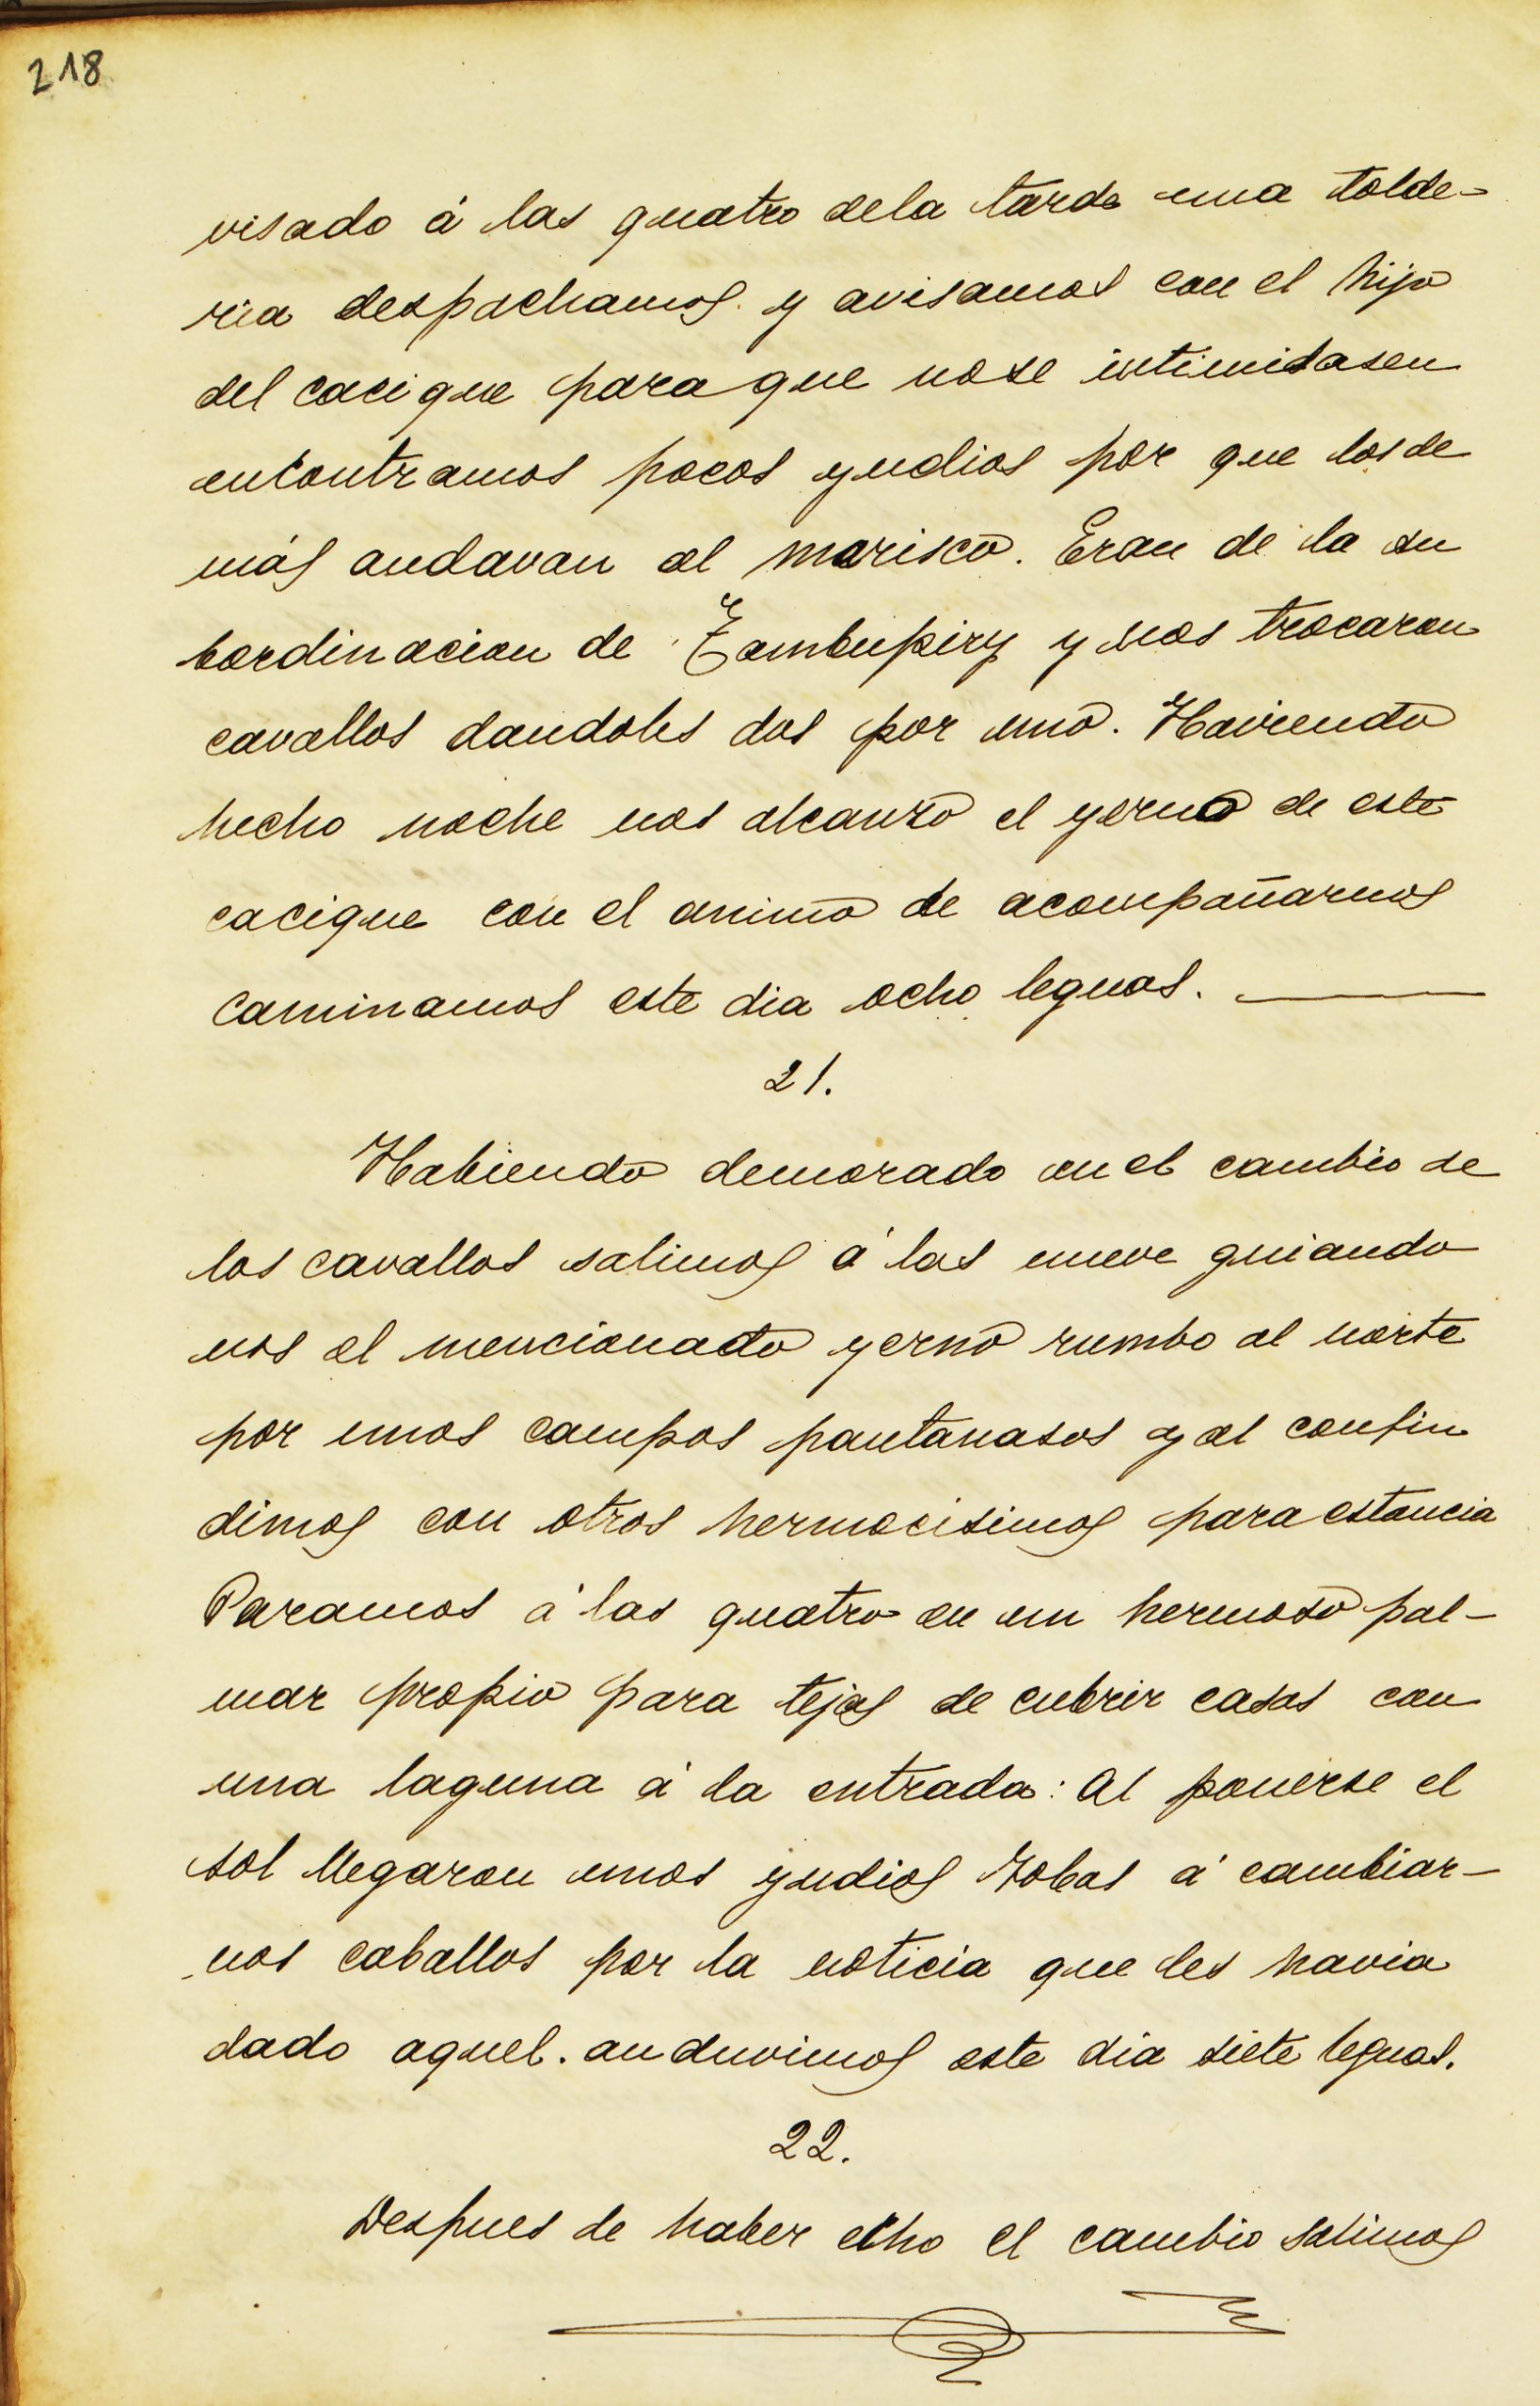 218
visado á las quatro dela tarde una tolde-
ria despachamos y avisamos con el hijo
del cacique para que nose intimidasen
encontramos pocos yndios por que los de
más andavan al marisco. Eran de la su
bordinacion de Tambupiry y nos trocaron
cavallos dandoles dos por uno. Haviendo
hecho noche nos alcanzo el yerno de este
cacique con el animo de acompañarnos
caminamos este dia ocho leguas.
21.
Habiendo demorado en el cambio de
los cavallos salimos á las nueve guiando
nos el mencionado yerno rumbo al norte
por unos campos pantanasos y al confin
dimos con otros hermocisimos para estancia
Paramos á las quatro en un hermoso pal-
mar propio para tejas de cubrir casas con
una laguna á la entrada: Al ponerse el
sol llegaron unos yndios Tobas á cambiar-
nos caballos por la noticia que les havia
dado aquel. anduvimos este dia siete leguas.
22.
Despues de haber echo el cambio salimos